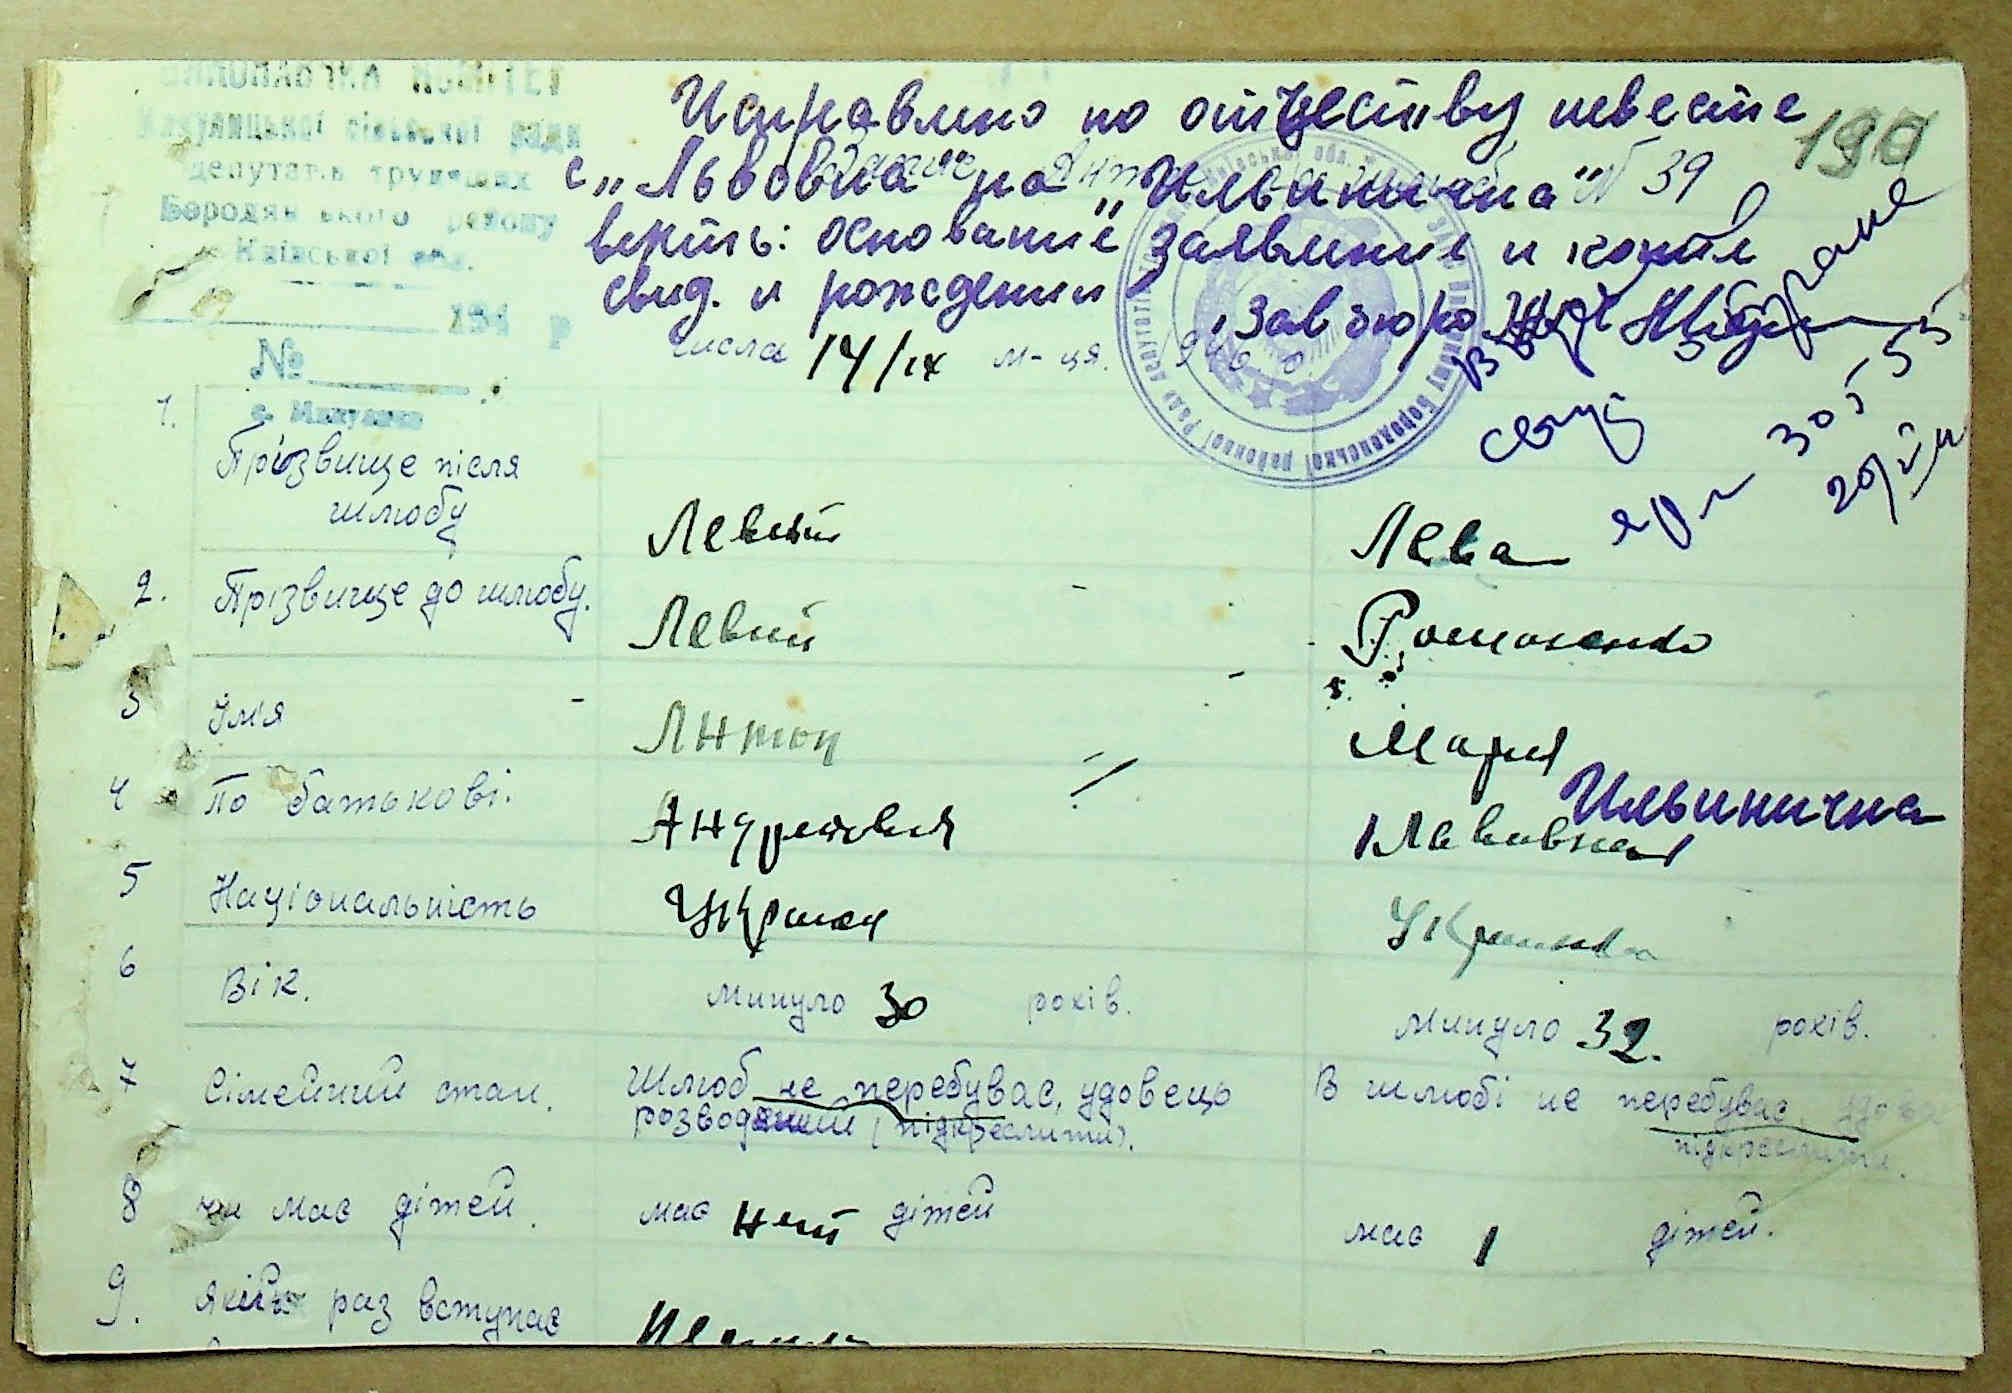 ВИКОНАВЧИЙ КОМІТЕТ
Микулицької сільської ради
депутатів трудящих
Бородянського району
Київської обл.
194 р
№
с. Микуличі
Исправлено по отчеству невесте
с „Львовна" на „Ильинична"
№ 39
верить: основание заявление и копия
свид. о рождении
Зав бюро ЗАГС
190
числа 14/IX м-ця. 1946 р.
1. Прізвище після шлюбу Левый Лева
2. Прізвище до шлюбу. Левый Романенко
3 Імя Антон Мария
4 По батькові. Андреевич Львовна Ильинична
5 Національність Украин Украинка
6 Вік. минуло 30 років. минуло 32. років.
7 Сімейний стан. Шлюб не перебуває, удовець В шлюбі не перебуває, удова
розводяний (підкреслити). підкреслити.
8 чи має дітей. має нет дітей має 1 дітей.
9. який раз вступає